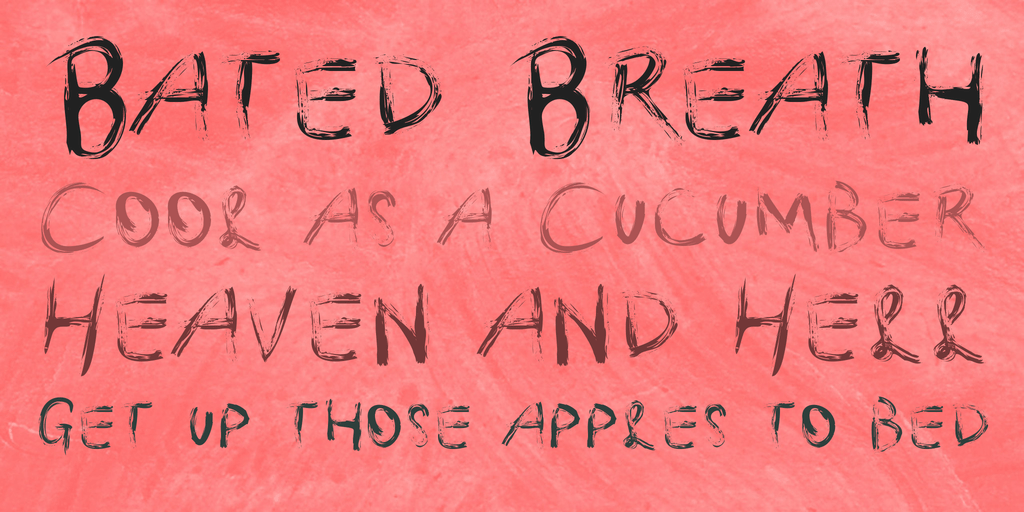 Bated Breath
Cool as a Cucumber
Heaven and Hell
Get up those apples to bed